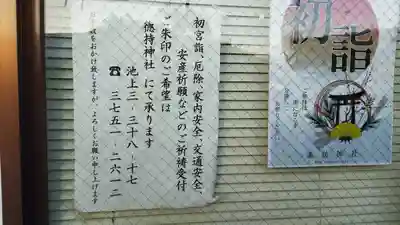 初宮詣、厄除、家内安全、交通安全、
安産祈願などのご祈祷受付
ご朱印のご希望は
徳持神社 にて承ります
池上三-三十八-十七
☎ 三七五一-二六一二
をおかけ致しますが、よろしくお願い申し上げます
初詣